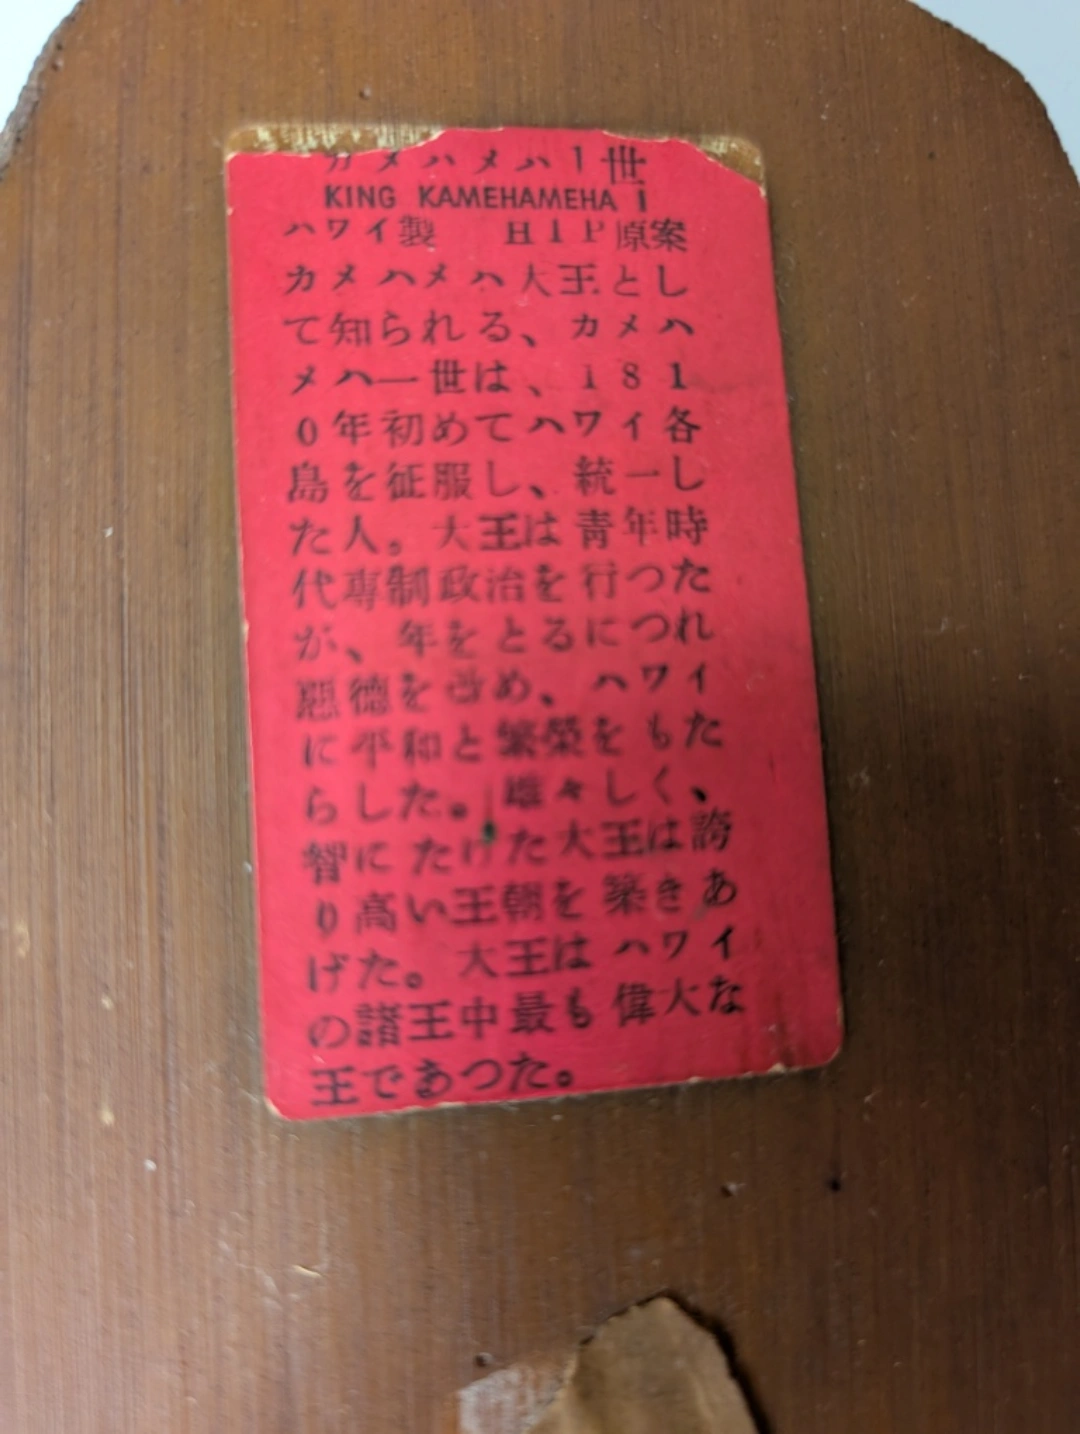 カメハメハ1世
KING KAMEHAMEHA I
ハワイ製 HIP原案
カメハメハ大王とし
て知られる、カメハ
メハ一世は、181
0年初めてハワイ各
島を征服し、統一し
た人。大王は青年時
代専制政治を行つた
が、年をとるにつれ
悪徳を改め、ハワイ
に平和と繁栄をもた
らした。雄々しく、
智にたけた大王は誇
り高い王朝を築きあ
げた。大王はハワイ
の諸王中最も偉大な
王であつた。